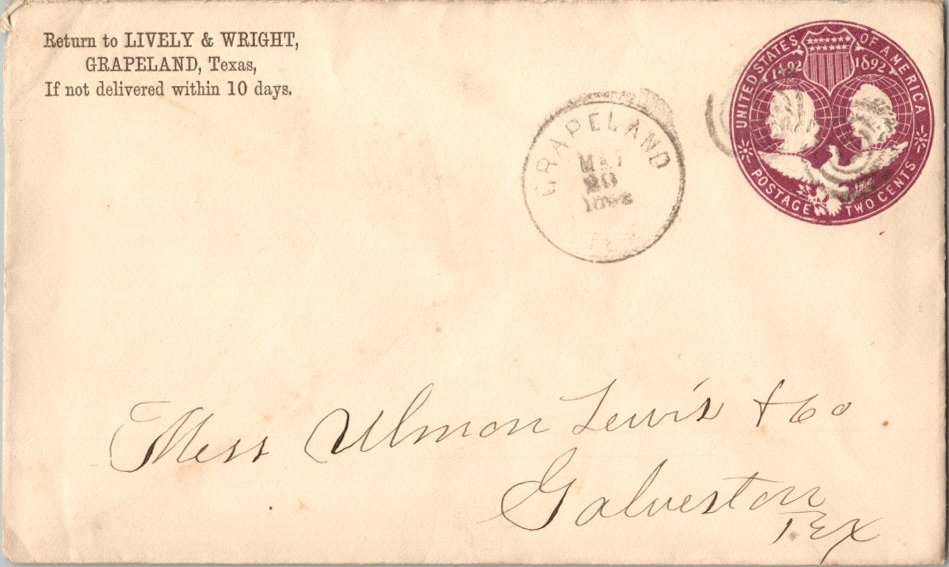 Return to LIVELY & WRIGHT,
GRAPELAND, Texas,
If not delivered within 10 days.
UNITED STATES OF AMERICA
1492 1892
POSTAGE TWO CENTS
GRAPELAND
20
TEX
Mess Ulmon Lewis & Co
Galveston
Tex